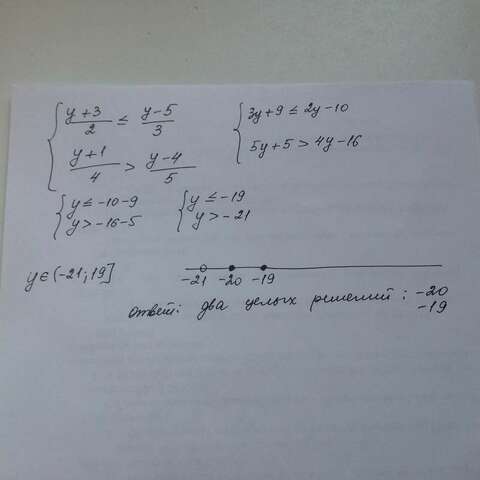 { y+3/2 ≤ y-5/3
{ y+1/4 > y-4/5
{ 3y+9 ≤ 2y-10
{ 5y+5 > 4y-16
{ y ≤ -10-9
{ y > -16-5
{ y ≤ -19
{ y > -21
y ∈ (-21; 19]
-21 -20 -19
ответ: два целых решений: -20
-19